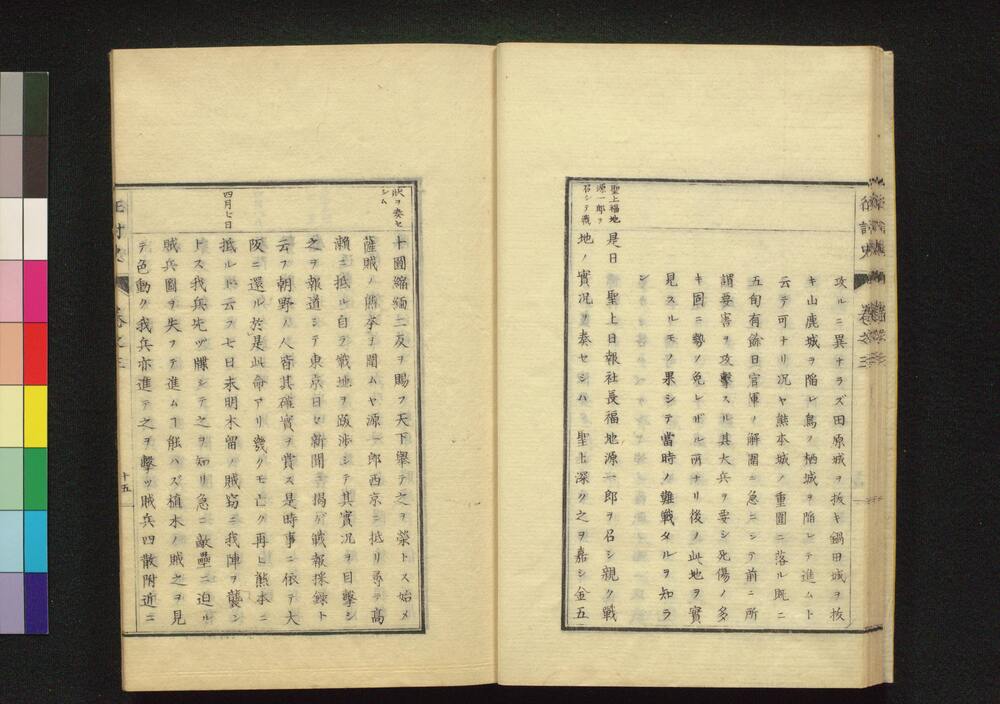 攻ルニ異ナラズ田原城ヲ抜キ鍋田城ヲ抜
キ山鹿城ヲ陥レ鳥ノ栖城ヲ陥レテ進ムト
云テ可ナリ况ヤ熊本城ノ重圍ニ落ル既ニ
五旬有餘日官軍ノ解圍ニ急ニシテ前ニ所
謂要害ヲ攻擊スル其大兵ヲ要シ死傷ノ多
キ固ニ勢ノ免レザル所ナリ後ノ此地ヲ實
見スルモノ果シテ當時ノ難戰タルヲ知ラ
ン
聖上福地
源一郎ヲ
召シテ戰
是日 聖上日報社長福地源一郎ヲ召シ親ク戰
地ノ實况ヲ奏セシハ 聖上深ク之ヲ嘉シ金五
状ヲ奏セ
シム
十圓縮緬二反ヲ賜フ天下擧テ之ヲ榮トス始メ
薩賊ノ熊本ヲ圍ムヤ源一郎西京ニ抵リ尋テ高
瀬ニ抵ル自ラ戰地ヲ跋渉シテ其實况ヲ目擊シ
之ヲ報道シテ東京日々新聞ニ掲ゲ戰報採録ト
云フ朝野ノ人皆其確實ヲ賞ス是時事ニ依テ大
阪ニ還ル於是此命アリ幾クモ亡ク再ヒ熊本ニ
四月七日
抵ルト云フ七日未明木留ノ賊窃ニ我陣ヲ襲ン
トス我兵先ヅ牒シテ之ヲ知リ急ニ敵壘ニ迫ル
賊兵圖ヲ失フテ進ムヿ能ハズ植木ノ賊之ヲ見
テ色動ク我兵亦進テ之ヲ擊ツ賊兵四散附近ニ
征討史
卷之三
十五